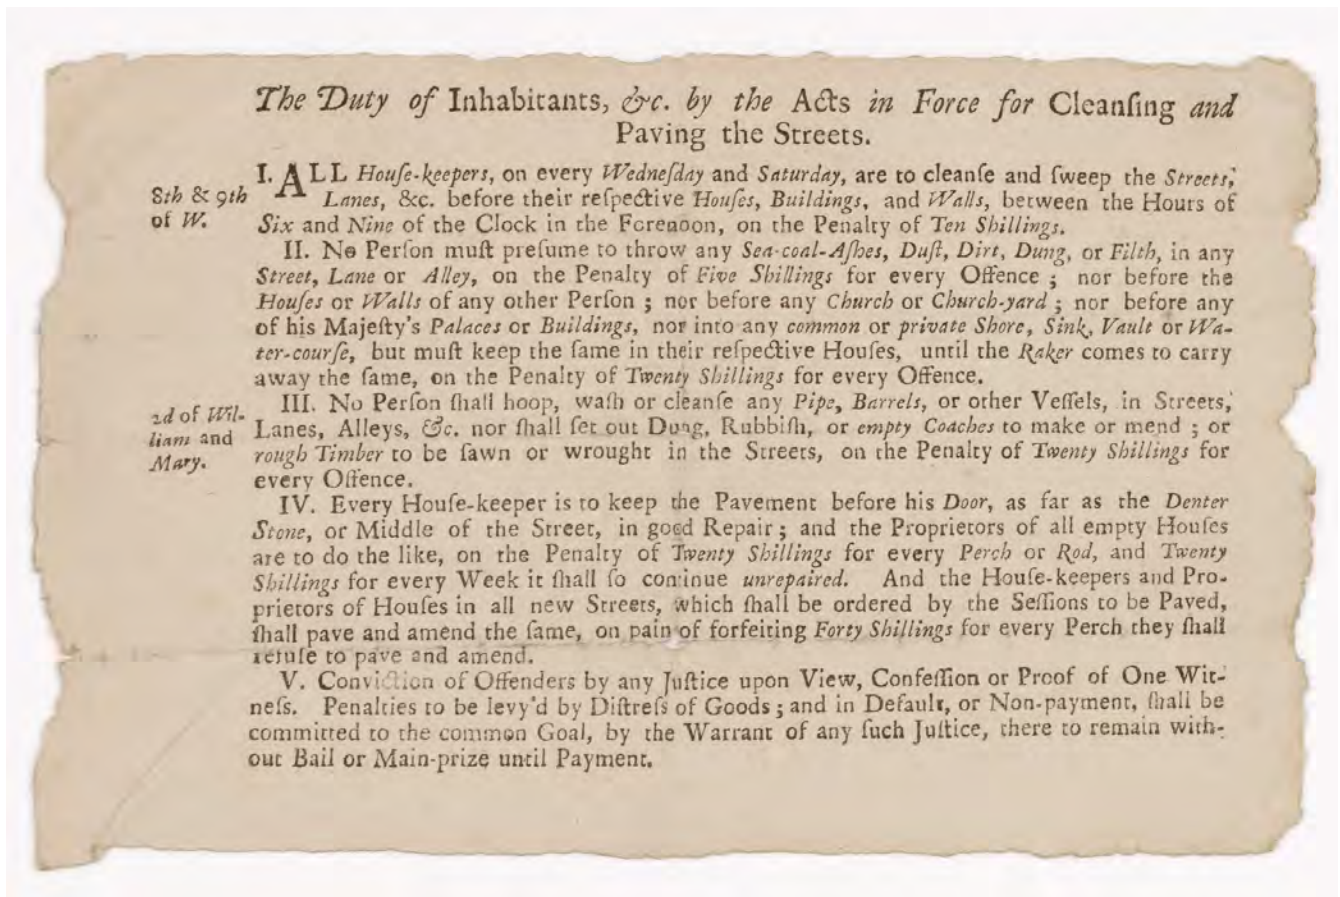 The Duty of Inhabitants, &c. by the Acts in Force for Cleanſing and
Paving the Streets.
8th & 9th
of W.
I. ALL Houſe-keepers, on every Wedneſday and Saturday, are to cleanſe and ſweep the Streets,
Lanes, &c. before their reſpective Houſes, Buildings, and Walls, between the Hours of
Six and Nine of the Clock in the Forenoon, on the Penalty of Ten Shillings.
II. No Perſon muſt preſume to throw any Sea-coal-Aſhes, Duſt, Dirt, Dung, or Filth, in any
Street, Lane or Alley, on the Penalty of Five Shillings for every Offence ; nor before the
Houſes or Walls of any other Perſon ; nor before any Church or Church-yard ; nor before any
of his Majeſty's Palaces or Buildings, nor into any common or private Shore, Sink, Vault or Wa-
ter-courſe, but muſt keep the ſame in their reſpective Houſes, until the Raker comes to carry
away the ſame, on the Penalty of Twenty Shillings for every Offence.
2d of Wil-
liam and
Mary.
III. No Perſon ſhall hoop, waſh or cleanſe any Pipe, Barrels, or other Veſſels, in Streets,
Lanes, Alleys, &c. nor ſhall ſet out Dung, Rubbiſh, or empty Coaches to make or mend ; or
rough Timber to be ſawn or wrought in the Streets, on the Penalty of Twenty Shillings for
every Offence.
IV. Every Houſe-keeper is to keep the Pavement before his Door, as far as the Denter
Stone, or Middle of the Street, in good Repair ; and the Proprietors of all empty Houſes
are to do the like, on the Penalty of Twenty Shillings for every Perch or Rod, and Twenty
Shillings for every Week it ſhall ſo continue unrepaired. And the Houſe-keepers and Pro-
prietors of Houſes in all new Streets, which ſhall be ordered by the Seſſions to be Paved,
ſhall pave and amend the ſame, on pain of forfeiting Forty Shillings for every Perch they ſhall
refuſe to pave and amend.
V. Conviction of Offenders by any Juſtice upon View, Confeſſion or Proof of One Wit-
neſs. Penalties to be levy'd by Diſtreſs of Goods ; and in Default, or Non-payment, ſhall be
committed to the common Goal, by the Warrant of any ſuch Juſtice, there to remain with-
out Bail or Main-prize until Payment.